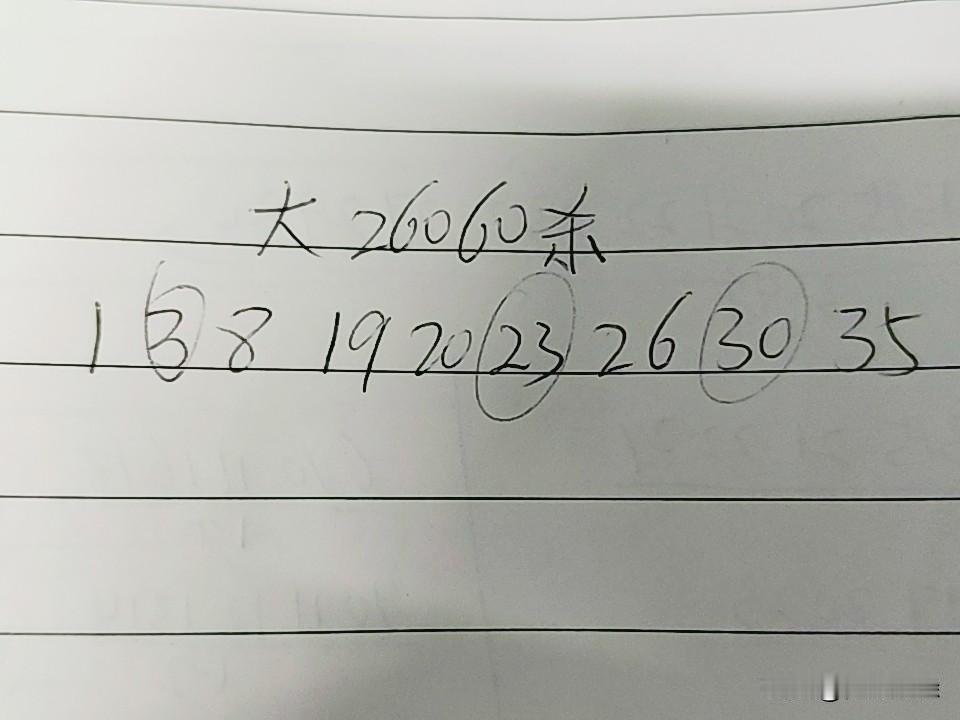 大26060杀
1 3 8 19 20 23 26 30 35